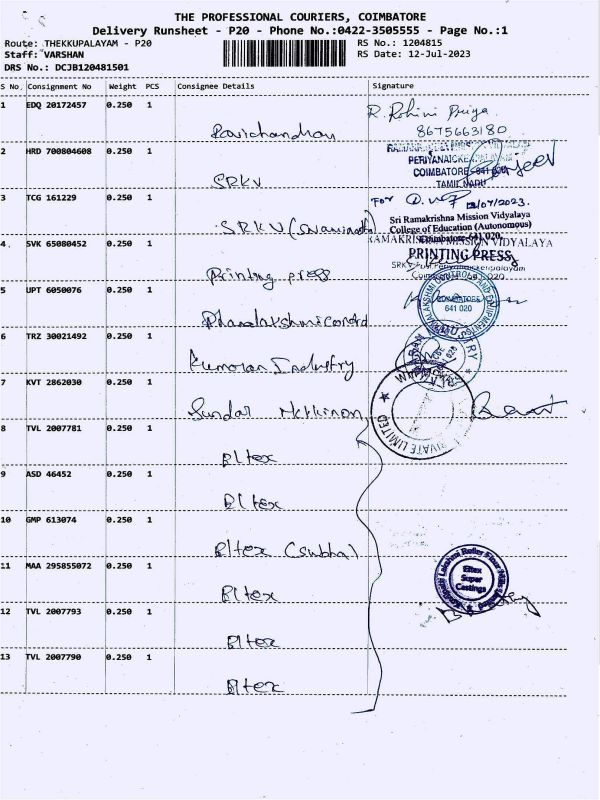 THE PROFESSIONAL COURIERS, COIMBATORE
Delivery Runsheet - P20 - Phone No.:0422-3505555 - Page No.:1
Route: THEKKUPALAYAM - P20
RS No.: 1204815
Staff: VARSHAN
RS Date: 12-Jul-2023
DRS No.: DCJB120481501
S No. Consignment No Weight PCS Consignee Details Signature
1 EDQ 20172457 0.250 1 Ravichandran R. Rohini Priya
8675663180
2 HRD 700804608 0.250 1 SRKV
PERIYANAICKENPALAYAM
COIMBATORE-641 020
TAMIL NADU
3 TCG 161229 0.250 1 SRKV For 12/07/2023.
Sri Ramakrishna Mission Vidyalaya
College of Education (Autonomous)
Coimbatore-641 020
4 SVK 65080452 0.250 1 Printing press
RAMAKRISHNA MISSION VIDYALAYA
PRINTING PRESS
5 UPT 6050076 0.250 1
COIMBATORE
641 020
6 TRZ 30021492 0.250 1 Kumaran Industry
7 KVT 2862030 0.250 1 Sundar
PRIVATE LIMITED
8 TVL 2007781 0.250 1 Eltex
9 ASD 46452 0.250 1 Eltex
10 GMP 613074 0.250 1 Eltex (Subha)
11 MAA 295855072 0.250 1 Eltex
Lakshmi Roller Flour Mills Limited
Eltex
Super
Castings
12 TVL 2007793 0.250 1 Eltex
13 TVL 2007790 0.250 1 Eltex